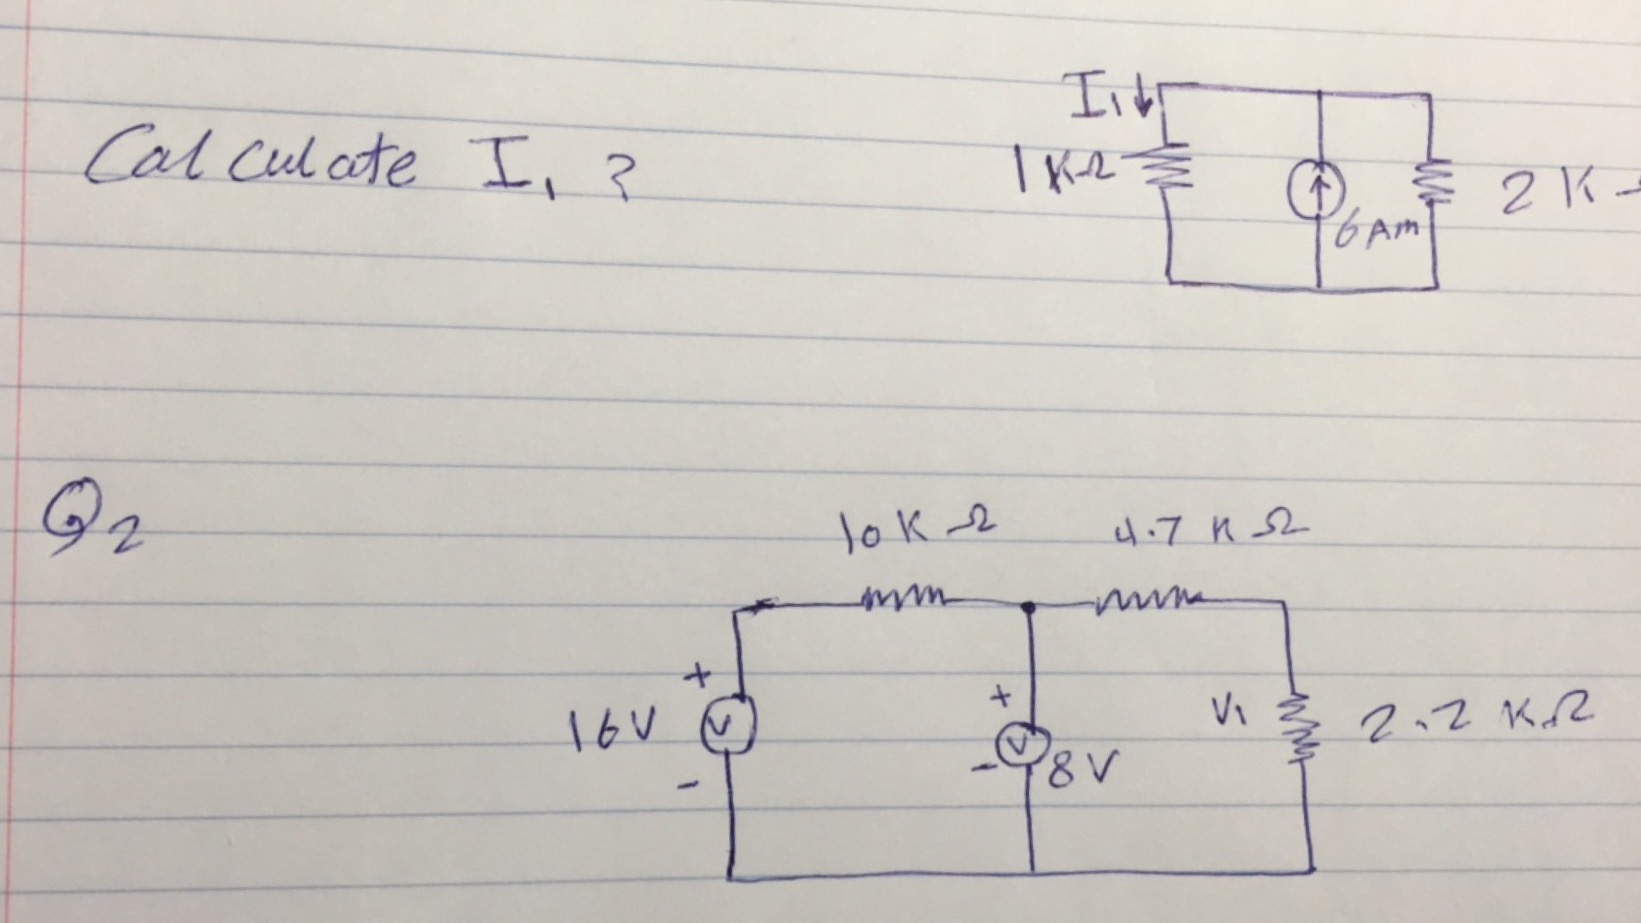 I₁ ↓
Calculate I₁ ?
1 KΩ
6 Am
2 K
Q2
10 K Ω
4.7 K Ω
+
16V
V
-
+
V
-
8V
V₁
2.2 KΩ